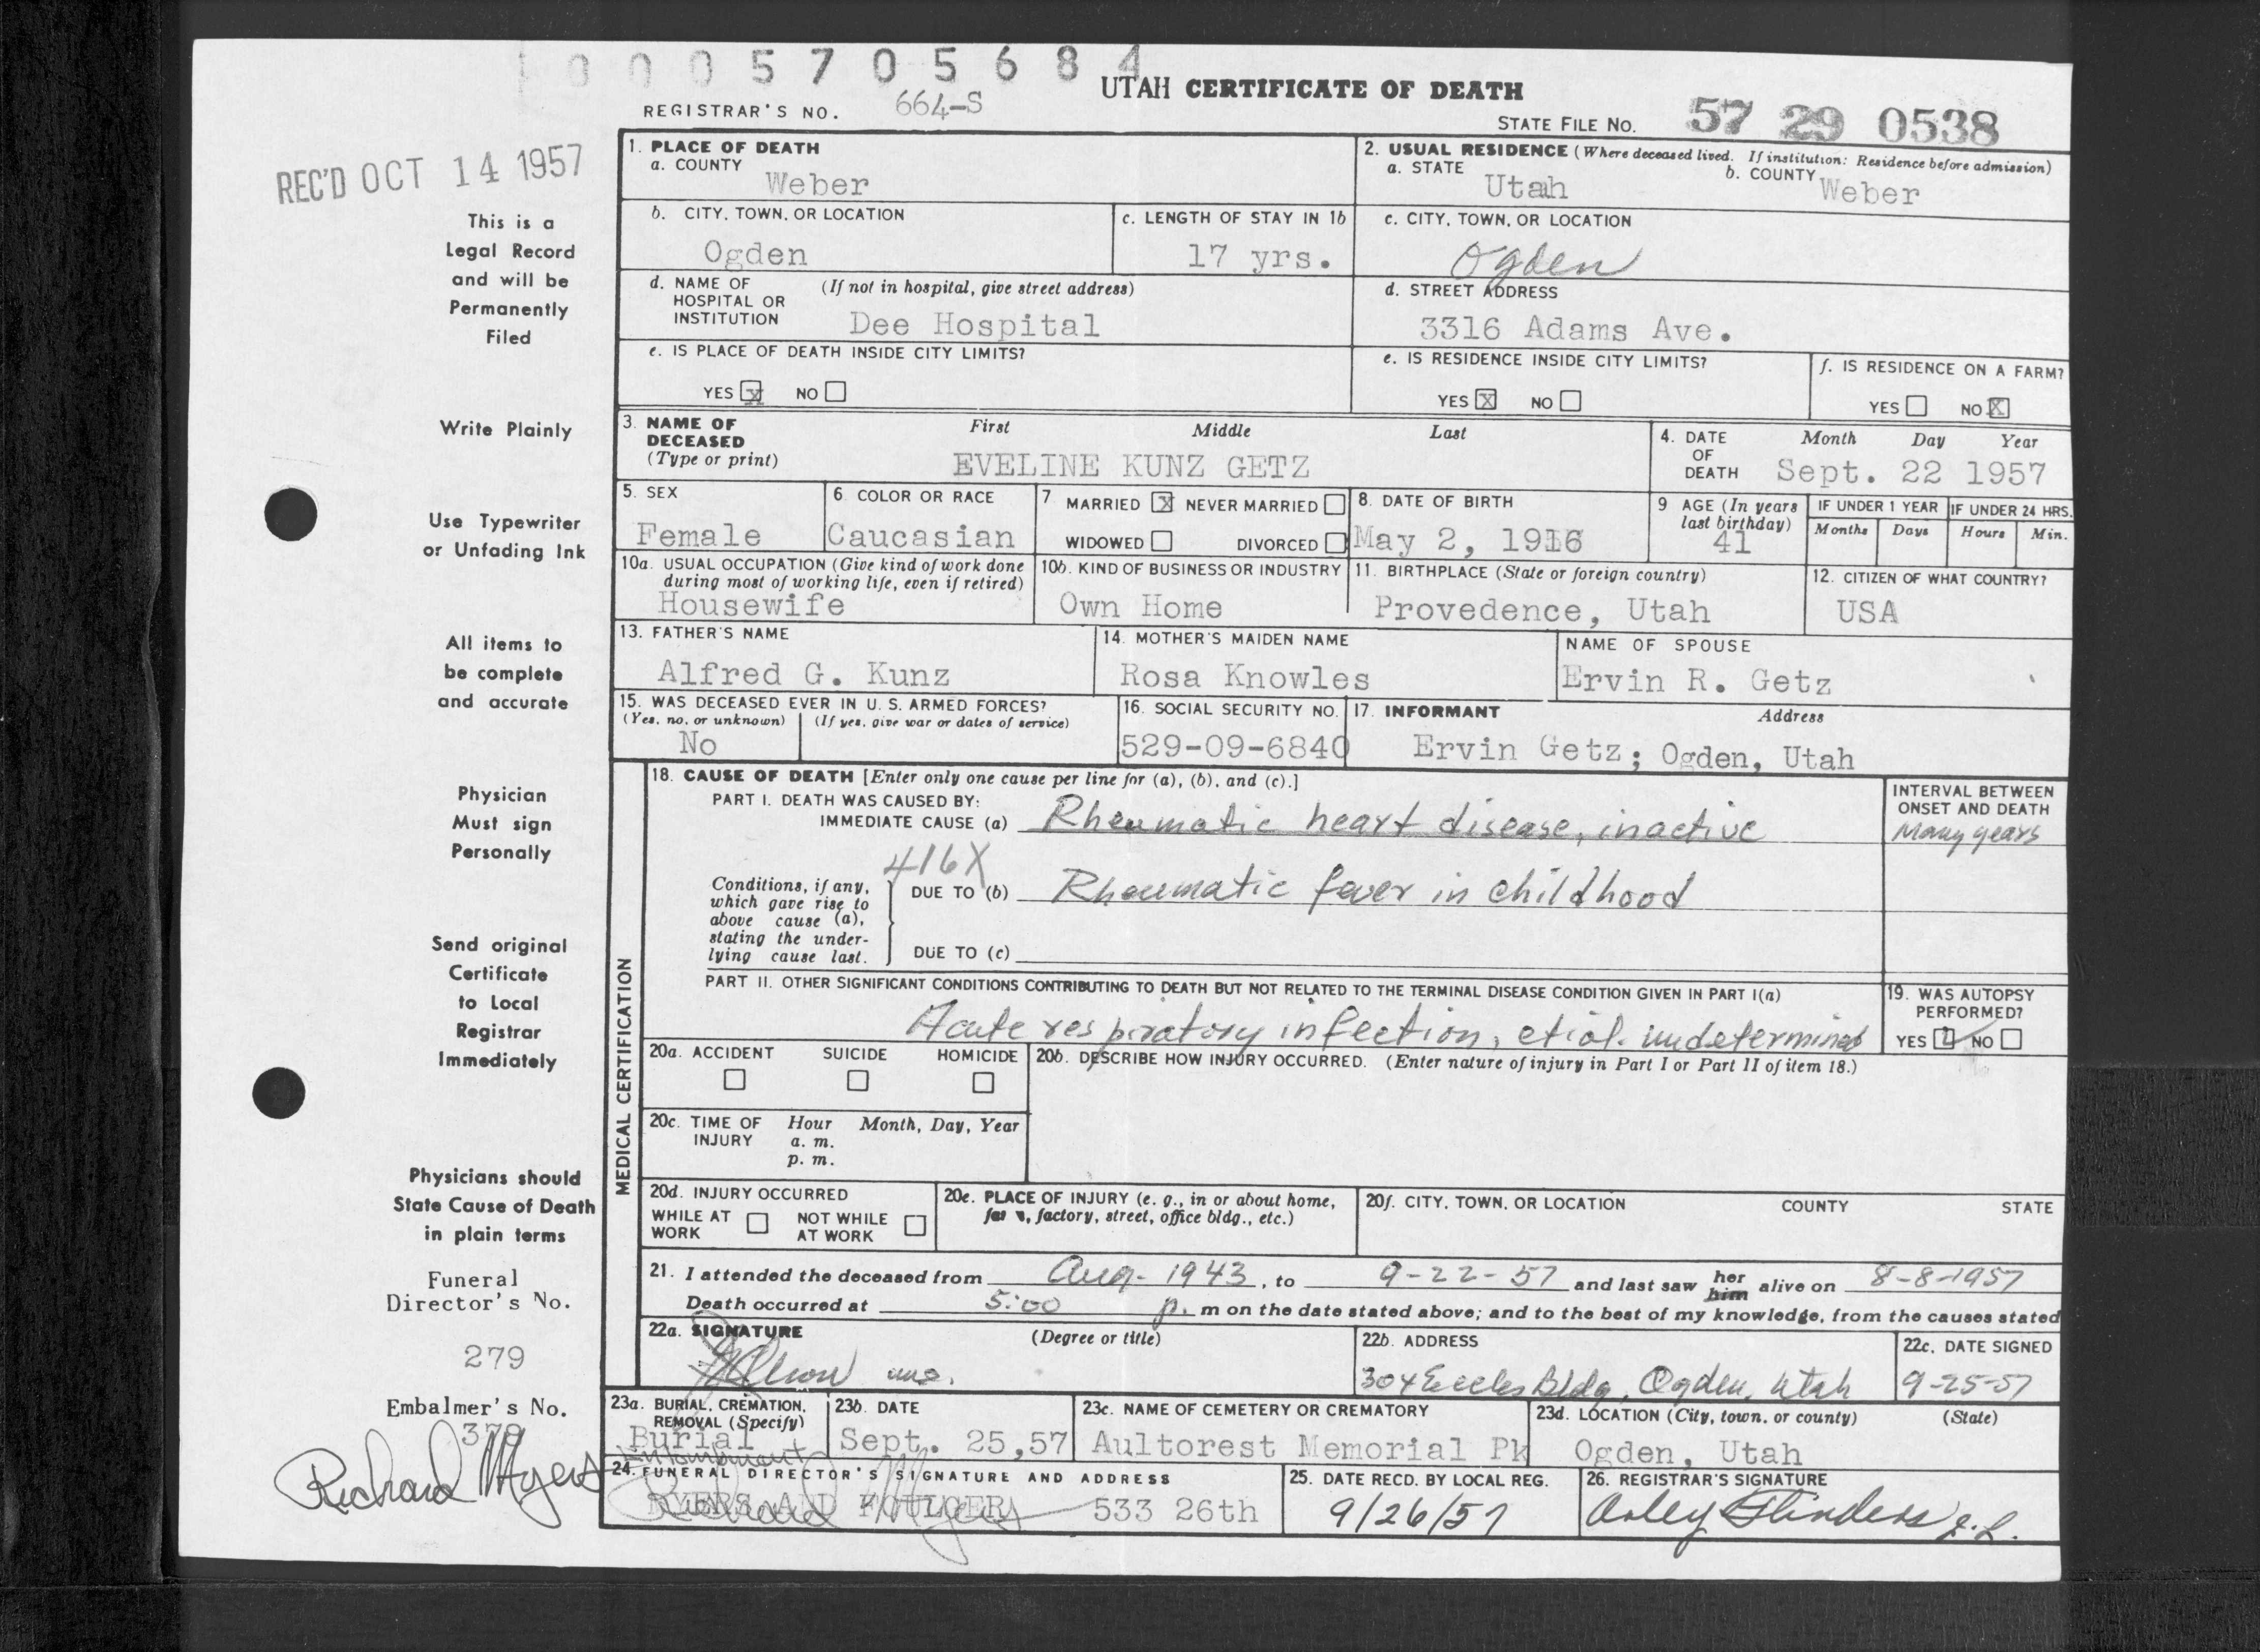 0 0 0 5 7 0 5 6 8 4
UTAH CERTIFICATE OF DEATH
REGISTRAR'S NO. 664-S
STATE FILE NO. 57 29 0538
REC'D OCT 14 1957
This is a
Legal Record
and will be
Permanently
Filed
Write Plainly
Use Typewriter
or Unfading Ink
All items to
be complete
and accurate
Physician
Must sign
Personally
Send original
Certificate
to Local
Registrar
Immediately
Physicians should
State Cause of Death
in plain terms
Funeral
Director's No.
279
Embalmer's No.
379
Richard Myers
1. PLACE OF DEATH
a. COUNTY Weber
2. USUAL RESIDENCE (Where deceased lived. If institution: Residence before admission)
a. STATE Utah b. COUNTY Weber
b. CITY, TOWN, OR LOCATION Ogden
c. LENGTH OF STAY IN 1b 17 yrs.
c. CITY, TOWN, OR LOCATION Ogden
d. NAME OF HOSPITAL OR INSTITUTION (If not in hospital, give street address) Dee Hospital
d. STREET ADDRESS 3316 Adams Ave.
e. IS PLACE OF DEATH INSIDE CITY LIMITS?
YES X NO
e. IS RESIDENCE INSIDE CITY LIMITS?
YES X NO
f. IS RESIDENCE ON A FARM?
YES NO X
3. NAME OF DECEASED (Type or print) First Middle Last
EVELINE KUNZ GETZ
4. DATE OF DEATH Month Day Year
Sept. 22 1957
5. SEX Female
6. COLOR OR RACE Caucasian
7 MARRIED X NEVER MARRIED
WIDOWED DIVORCED
8. DATE OF BIRTH May 2, 1916
9 AGE (In years last birthday) 41
IF UNDER 1 YEAR Months Days
IF UNDER 24 HRS. Hours Min.
10a. USUAL OCCUPATION (Give kind of work done during most of working life, even if retired)
Housewife
10b. KIND OF BUSINESS OR INDUSTRY
Own Home
11. BIRTHPLACE (State or foreign country)
Provedence, Utah
12. CITIZEN OF WHAT COUNTRY?
USA
13. FATHER'S NAME
Alfred G. Kunz
14. MOTHER'S MAIDEN NAME
Rosa Knowles
NAME OF SPOUSE
Ervin R. Getz
15. WAS DECEASED EVER IN U. S. ARMED FORCES?
(Yes, no, or unknown) (If yes, give war or dates of service)
No
16. SOCIAL SECURITY NO.
529-09-6840
17. INFORMANT Address
Ervin Getz; Ogden, Utah
MEDICAL CERTIFICATION
18. CAUSE OF DEATH [Enter only one cause per line for (a), (b), and (c).]
PART I. DEATH WAS CAUSED BY:
IMMEDIATE CAUSE (a) Rheumatic heart disease, inactive
INTERVAL BETWEEN ONSET AND DEATH
Many years
416X
Conditions, if any, which gave rise to above cause (a), stating the underlying cause last.
DUE TO (b) Rheumatic fever in childhood
DUE TO (c)
PART II. OTHER SIGNIFICANT CONDITIONS CONTRIBUTING TO DEATH BUT NOT RELATED TO THE TERMINAL DISEASE CONDITION GIVEN IN PART I(a)
Acute respiratory infection, etiol. undetermined
19. WAS AUTOPSY PERFORMED?
YES NO
20a. ACCIDENT SUICIDE HOMICIDE
20b. DESCRIBE HOW INJURY OCCURRED. (Enter nature of injury in Part I or Part II of item 18.)
20c. TIME OF INJURY Hour Month, Day, Year
a. m.
p. m.
20d. INJURY OCCURRED
WHILE AT WORK NOT WHILE AT WORK
20e. PLACE OF INJURY (e. g., in or about home, factory, street, office bldg., etc.)
20f. CITY, TOWN, OR LOCATION COUNTY STATE
21. I attended the deceased from Aug- 1943, to 9-22-57 and last saw her him alive on 8-8-1957
Death occurred at 5:00 p. m on the date stated above; and to the best of my knowledge, from the causes stated
22a. SIGNATURE (Degree or title)
22b. ADDRESS
304 Eccles Bldg, Ogden, Utah
22c. DATE SIGNED
9-25-57
23a. BURIAL, CREMATION, REMOVAL (Specify)
Burial
Entombment
23b. DATE
Sept. 25,57
23c. NAME OF CEMETERY OR CREMATORY
Aultorest Memorial Pk
23d. LOCATION (City, town, or county) (State)
Ogden, Utah
24. FUNERAL DIRECTOR'S SIGNATURE AND ADDRESS
MYERS AND FOULGER 533 26th
Richard Myers
25. DATE RECD. BY LOCAL REG.
9/26/57
26. REGISTRAR'S SIGNATURE